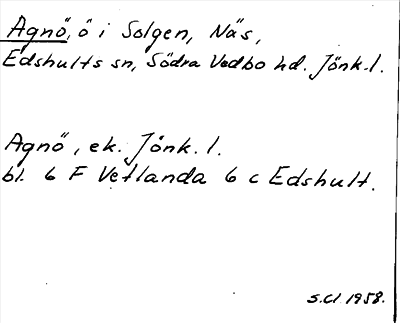 Agnö, ö i Solgen, Näs,
Edshults sn, Södra Vedbo hd. Jönk. l.
Agnö, ek. Jönk. l.
bl. 6 F Vetlanda 6 c Edshult.
S.Cl. 1958.